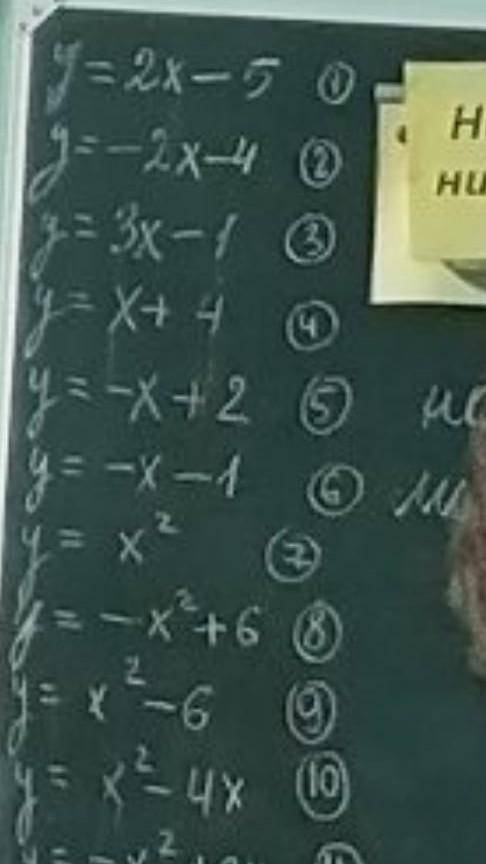 y = 2x - 5 ①
y = -2x - 4 ②
y = 3x - 1 ③
y = x + 4 ④
y = -x + 2 ⑤
y = -x - 1 ⑥
y = x² ⑦
y = -x² + 6 ⑧
y = x² - 6 ⑨
y = x² - 4x ⑩
ни